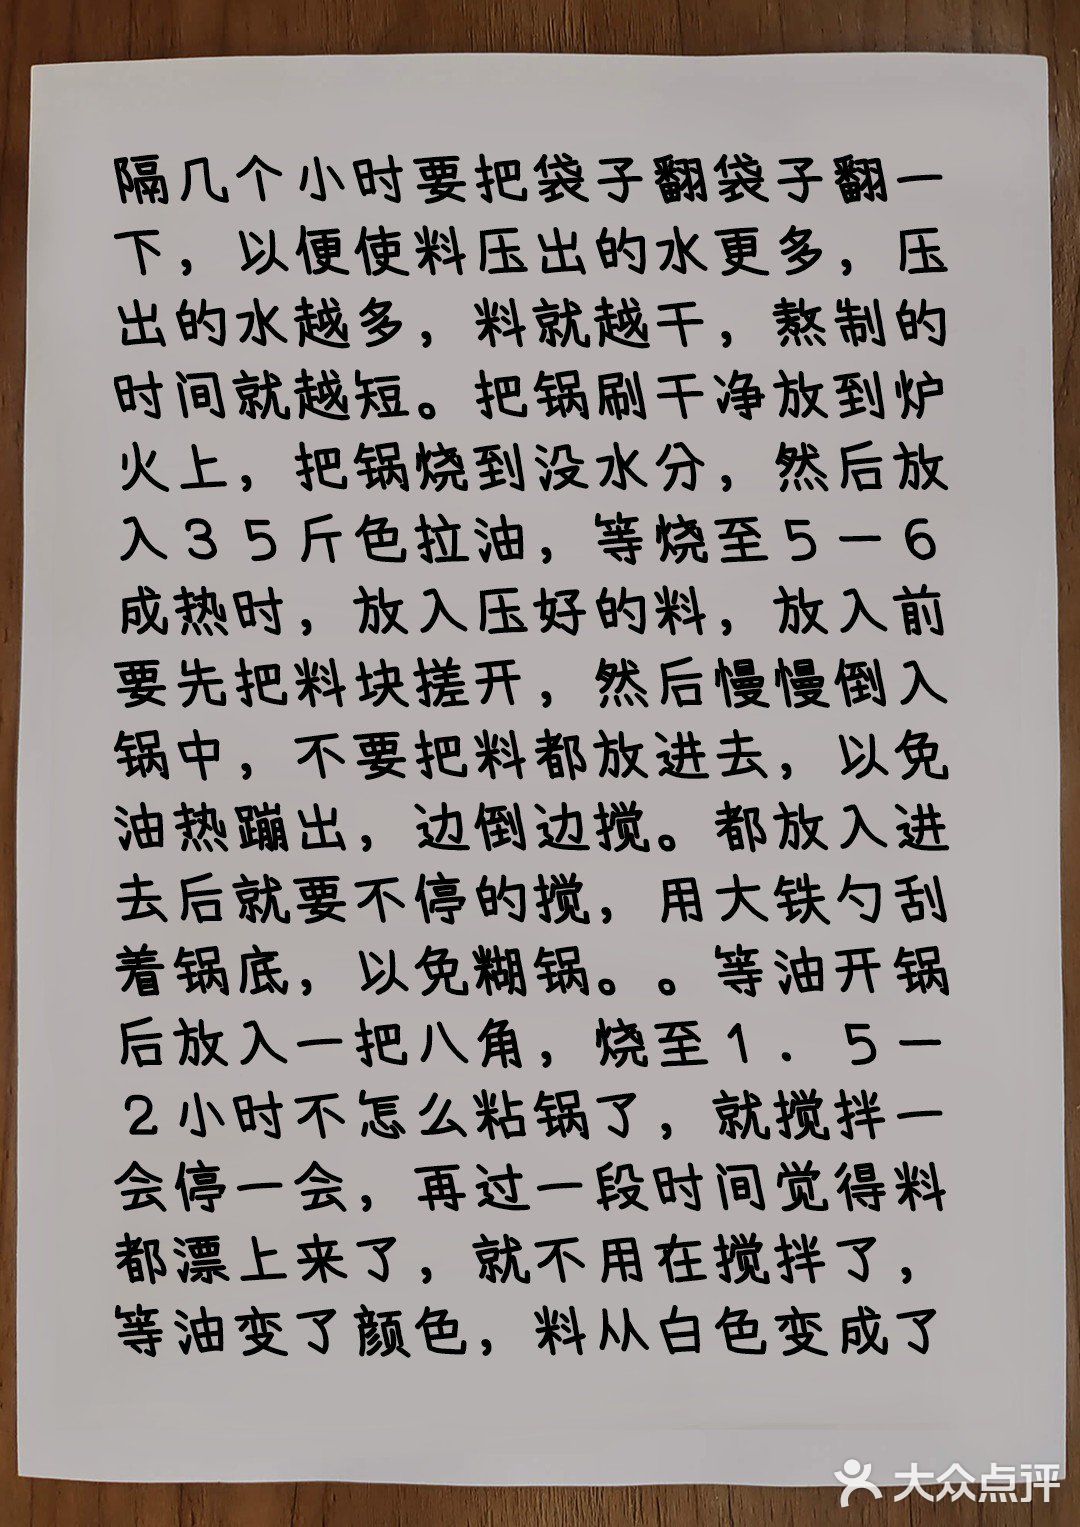 隔几个小时要把袋子翻袋子翻一
下，以便使料压出的水更多，压
出的水越多，料就越干，熬制的
时间就越短。把锅刷干净放到炉
火上，把锅烧到没水分，然后放
入35斤色拉油，等烧至5一6
成热时，放入压好的料，放入前
要先把料块搓开，然后慢慢倒入
锅中，不要把料都放进去，以免
油热蹦出，边倒边搅。都放入进
去后就要不停的搅，用大铁勺刮
着锅底，以免糊锅。。等油开锅
后放入一把八角，烧至1．5一
2小时不怎么粘锅了，就搅拌一
会停一会，再过一段时间觉得料
都漂上来了，就不用在搅拌了，
等油变了颜色，料从白色变成了
大众点评